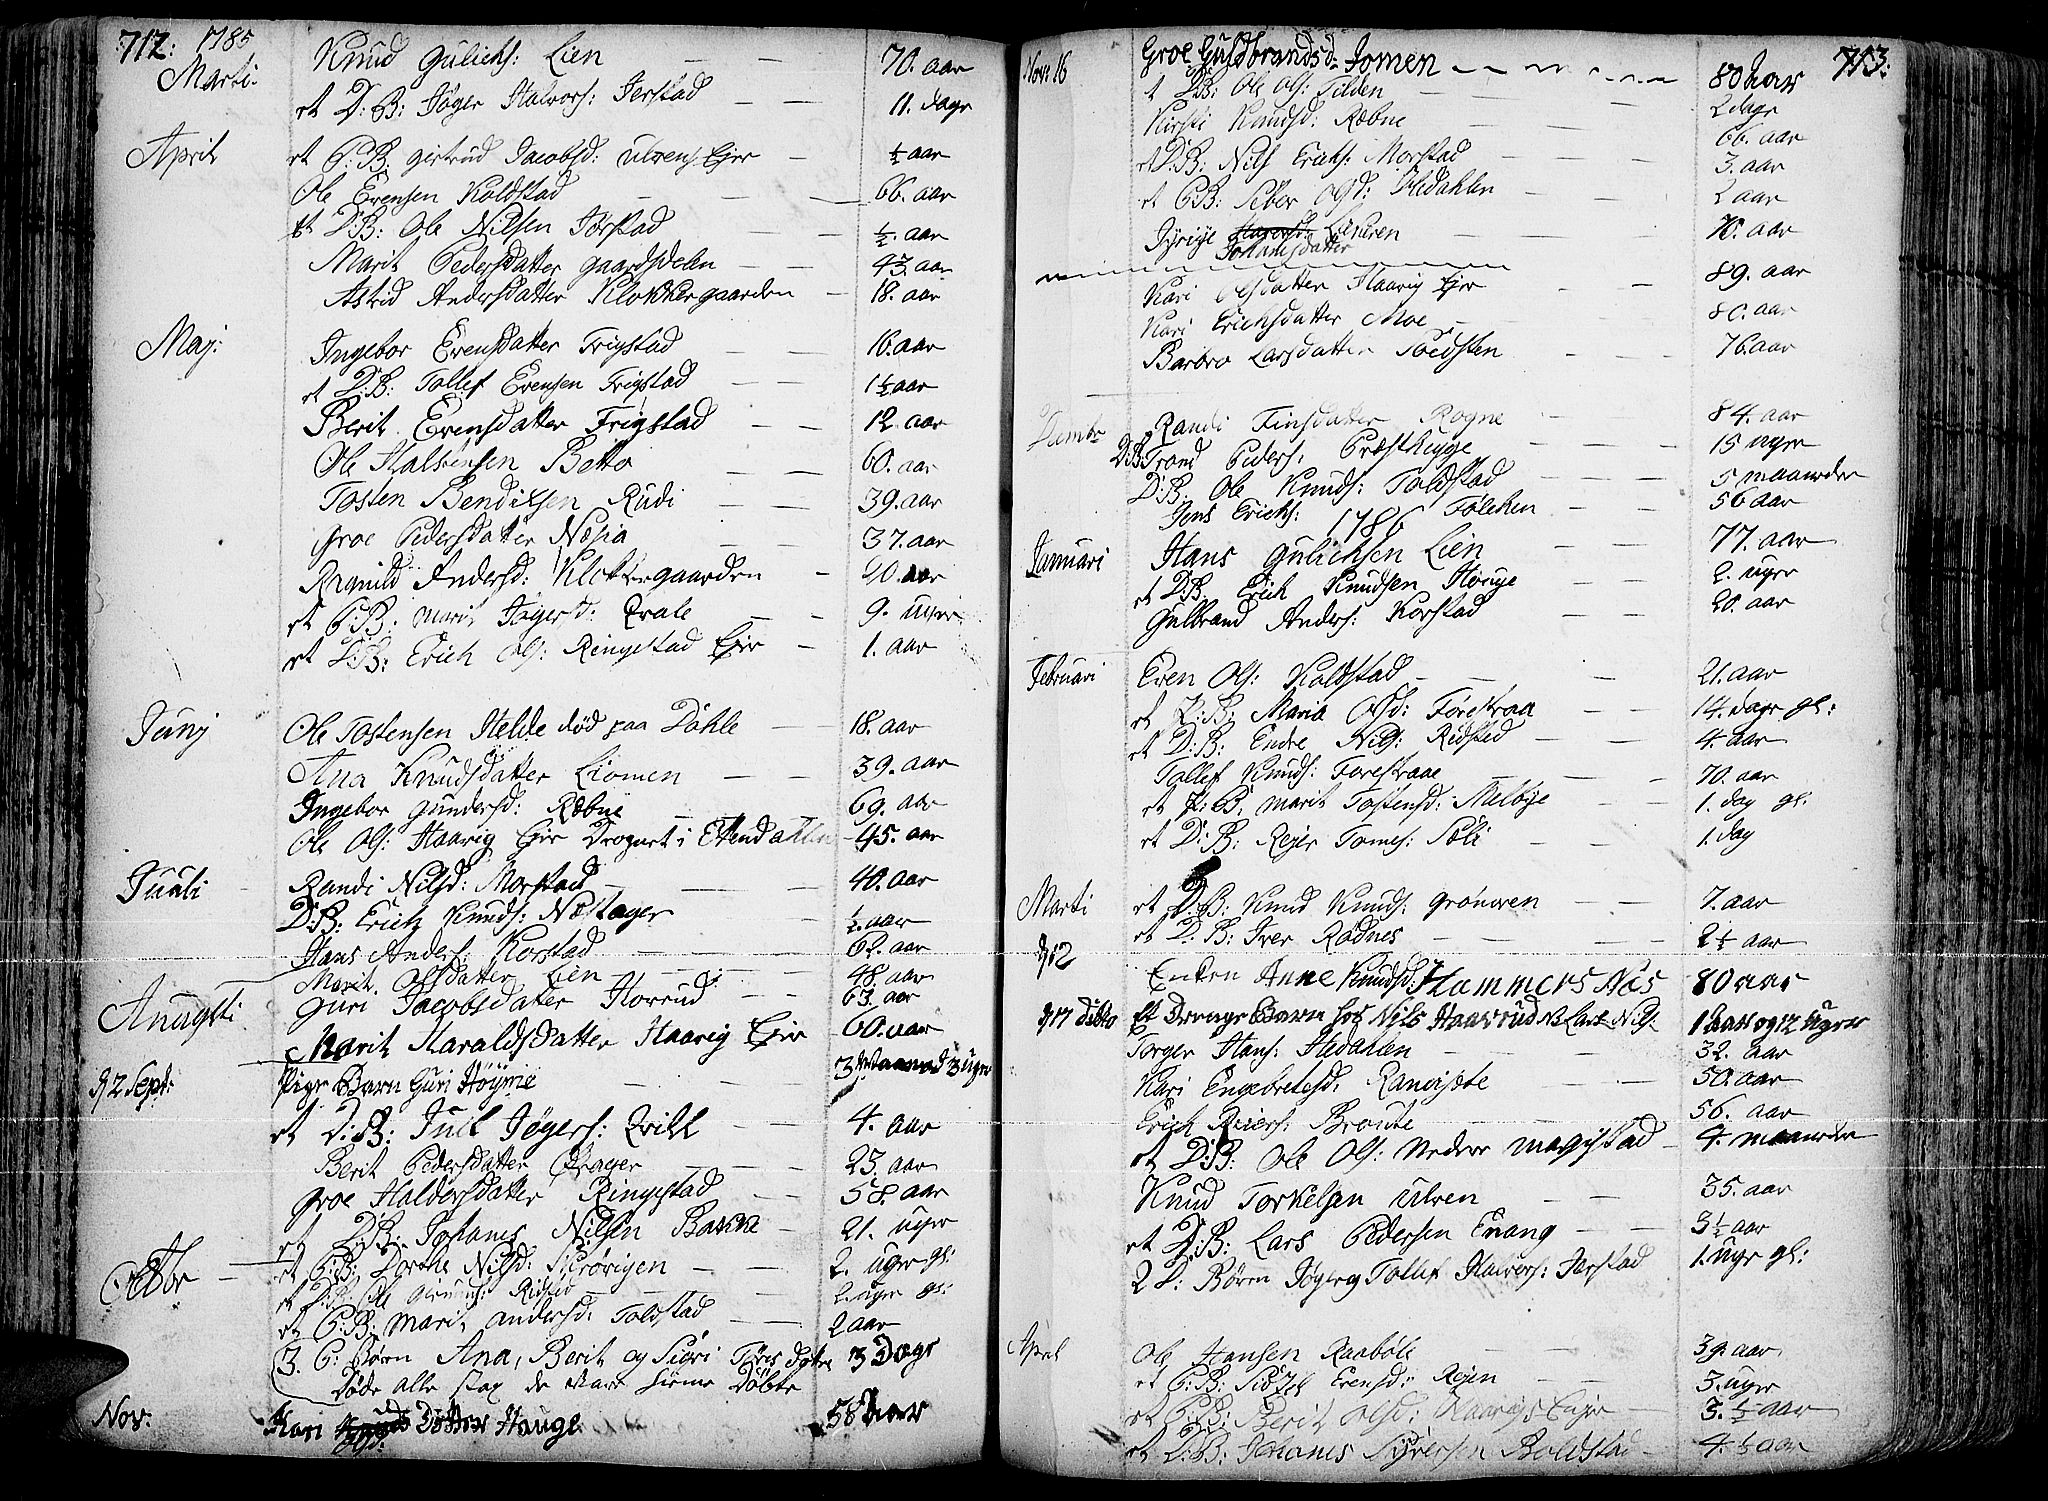 712: 1785
Marti. Knud Gulichs: Lien — — 70. aar
et D: B: Jøger Halvors: Jerstad — — 11. dage
April et P: B: Girtrud Jacobsd: Ulvens Ejer — ½ aar
Ole Evensen Koldstad — — 66. aar
et D: B: Ole Nilsen Jørstad — — ½. aar
Marit Pedersdatter Gaardsdelen — — 43. aar
Astrid Andersdatter Klokkergaarden — 18. aar
Maj: Ingebor Evensdatter Frigstad — — 16. aar
et D: B: Tollef Evensen Frigstad — — 1½ aar
Berit Evensdatter Frigstad — — 12. aar
Ole Halstensen Betto — — 60. aar
Tosten Bendixsen Rudi — — 39. aar
Groe Pedersdatter Nøsia — — 37. aar
Rangnild Andersd: Klokkergaarden — 20. aar
et P: B: Marit Jøgersd: Qvale — — 9. uger
et D: B: Erich Ols: Ringestad Ejer — 1. aar
Junj Ole Tostensen Helde død paa Dahle — 18. aar
Ana Knudsdatter Liomen — — 39. aar
Ingebor Gundersd: Ræbne — — 69. aar
Ole Ols: Haarig Ejer in Etendahlen — 45. aar
Juuli Randi Nilsd: Morstad — — 40. aar
D: B: Erich Knuds: Nøstager — — ½. aar
Hans Anders: Korstad — — 62. aar
Marit Olsdatter Lien — — 48. aar
Augusti Guri Jacobsdatter Horrud — — 63. aar
Marit Haraldsdatter Haarig Ejer 60. aar
d 2 Sept: Pige Barn Guri Høyme — — 3 Maaned 3 uger
et D: B: Juul Jøgers: Qvill — — 4. aar
Berit Pedersdatter Prager — — 23. aar
Groe Haldorsdatter Ringestad — — 58. aar
et D: B: Johanes Nilsen Bakke — 21. uger
Octbr — et P: B: Dorthe Nilsd: — — 2. uger gl:
et D: B: Ole Ridsted — — 2. uger gl:
et P: B: Marit Andersd: Toldstad — — 2 aar
3. P: Børn Ana, Berit og Sigri Tøres døtre 3 Dage
Døde alle strax de vare hieme Døbte
Nov: Kari Olsd: Dotter Hauge 58 aar

713:
Nov: 16 Groe Guldbrandsd: Jomen — — 80 aar
et D: B: Ole Ols: Tilden — — 2 dage
Kirsti Knudsd: Ræbne — — 66. aar
et D: B: Nils Erichs: Morstad — — 3. aar
et P: B: Siber Olsd: Hedahlen — 2 aar
Gyriye Johannisdatter — — 70. aar
Kari Olsdatter Haarig Ejer — — 89. aar
Kari Erichsdatter Moe — — 80. aar
Barbro Larsdatter — — 76. aar
Randi Finsdatter Rogne — 84. aar
D: B: Trond Peders: Præsthegge — 15 uger
D: B: Ole Knuds: Toldstad — — 5 maaneder
Jens Erichs: Føleken — — 56 aar
1786
Januari Hans Gulichsen Lien — — 77. aar
et D: B: Erich Knudsen Høuge — — 2. uger
Gulbrand Anders: Korstad — — 20. aar
Februari Even Ols: Koldstad — — 21. aar
et P: B: Maria Olsd: Førestraa — — 14. dage gl:
et D: B: Endre Nils: Ridsted — — 4. aar
Tollef Knuds: Forestraae — — 70. aar
et P: B: Marit Tostensd: Melbye — — 1. dag gl:
et D: B: Rejer Tomes: Søli — — 1. dag
Marti et D: B: Knud Knuds: Grønoren — — 7. aar
et D: B: Iver Rødnes — — 2½ aar
d 12 Enken Anne Knudsd: Hammers Næs 80 aar
d 17 ditto Et Drenge Barn hos Nils Haavrud NB Lars Nils: 1 aar og 12 uger
Torger Hans: Hedahlen — — 32. aar
Kari Engebretsd: — — 50. aar
Erich Reiers: Broute — — 56. aar
et D: B: Ole Ols: Nedere Magistad — 4. maaneder
Knud Torkelsen Ulven — — 35. aar
et D: B: Lars Pedersen Evang — — 3½ aar
2 D: Børn Jøger og Tollef Halvers: Jerstad 1. uge gl:
April Ole Hansen Raaböle — — 39. aar
et P: B: Sidzel Evensd: Rejen — — 3. uger
et P: B: Berit Olsd: Haarigs Ejer — 3. ½ aar
et D: B: Johanes Syversen Boldstad — 4. ½ aar